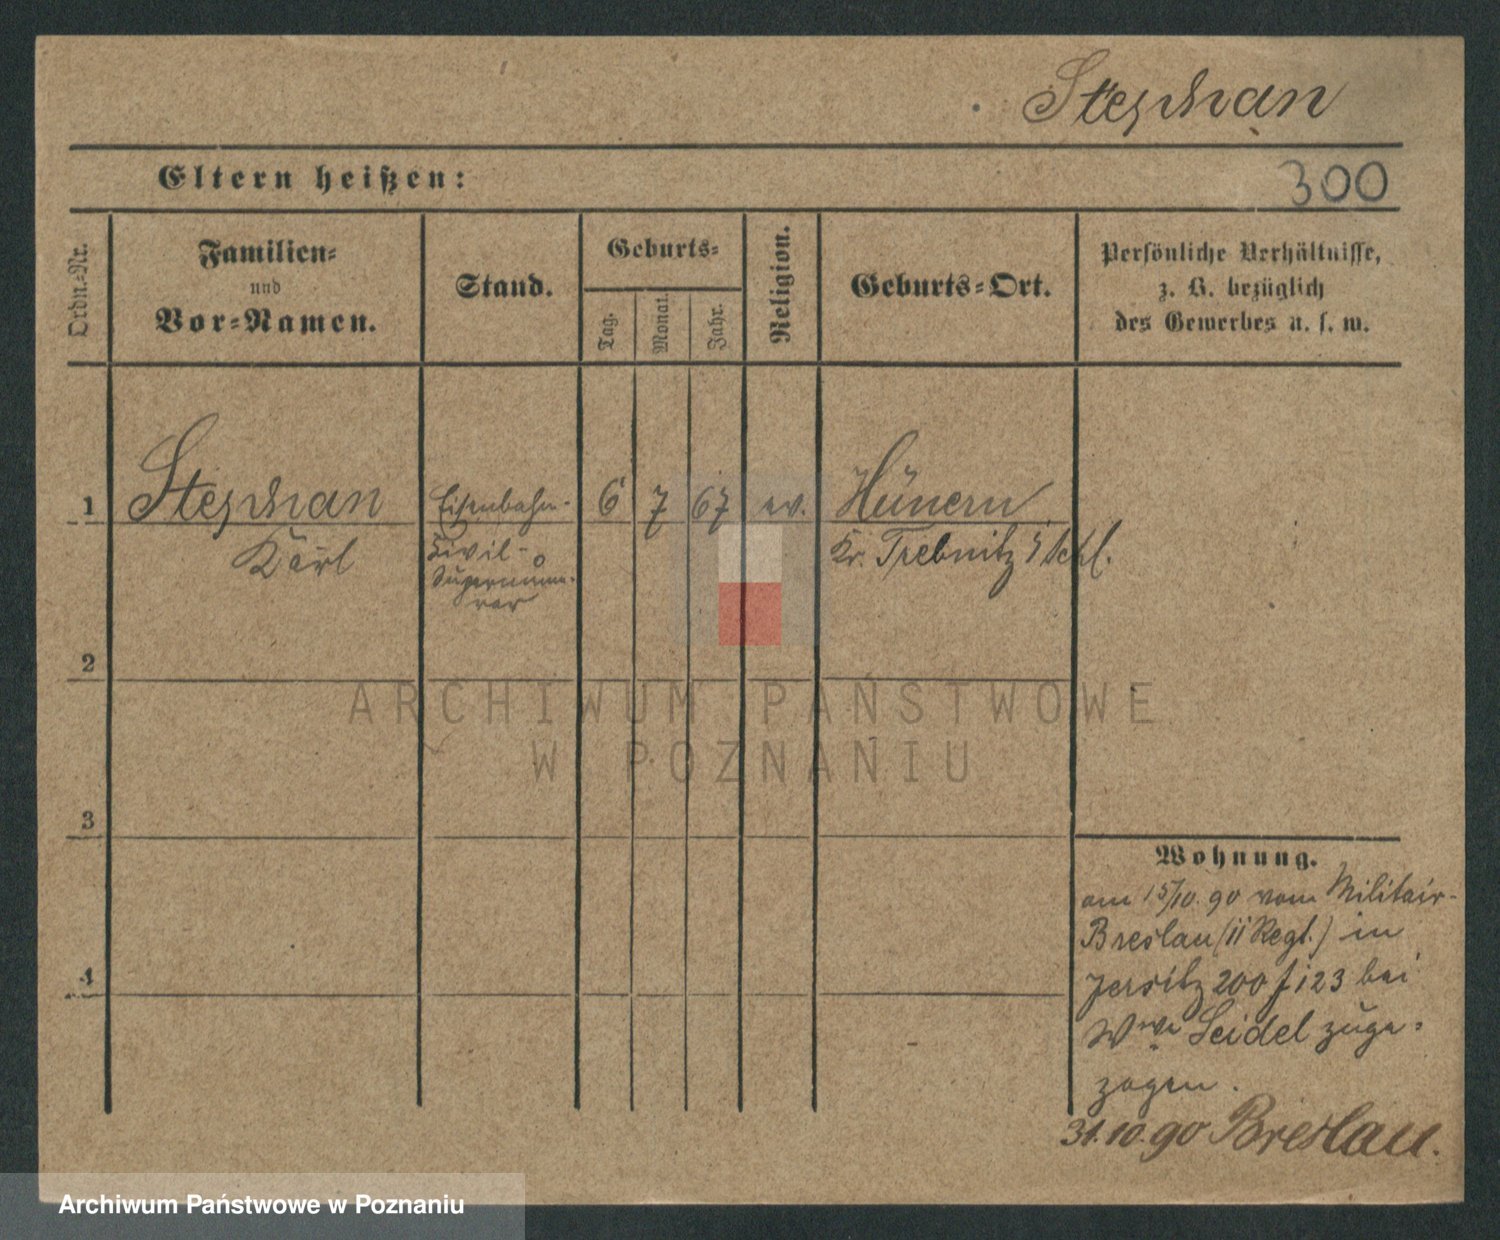 Stephan
Eltern heißen:
300
Ordn.-Nr.
Familien-
und
Vor-Namen.
Stand.
Geburts-
Tag.
Monat.
Jahr.
Religion.
Geburts-Ort.
Persönliche Verhältnisse,
z. B. bezüglich
des Gewerbes u. s. w.
1
Stephan
Karl
Eisenbahn-
Civil-
Supernume-
rar
6
7
67
ev.
Hünern
Kr. Trebnitz Schl.
2
3
4
ARCHIWUM PAŃSTWOWE
W POZNANIU
Wohnung.
am 15/10.90 vom Militair-
Breslau (11 Regt.) in
Jersitz 200 f 123 bei
Wwe Seidel zuge-
zogen.
31.10.90 Breslau.
Archiwum Państwowe w Poznaniu